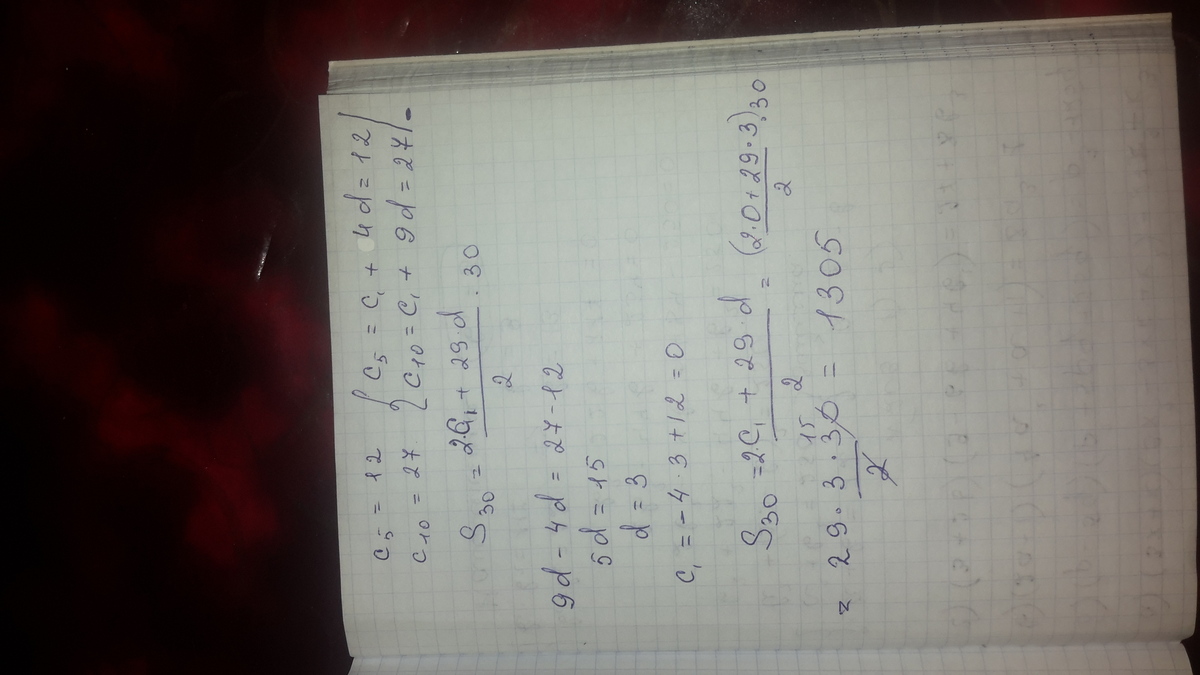 c₅ = 12 { c₅ = c₁ + 4d = 12 |
c₁₀ = 27 { c₁₀ = c₁ + 9d = 27 | -
S₃₀ = (2·c₁ + 29·d)/2 · 30
9d - 4d = 27 - 12
5d = 15
d = 3
c₁ = -4 · 3 + 12 = 0
S₃₀ = (2·c₁ + 29·d)/2 = (2·0 + 29·3)/2 · 30
= 29·3·30/2 15 = 1305